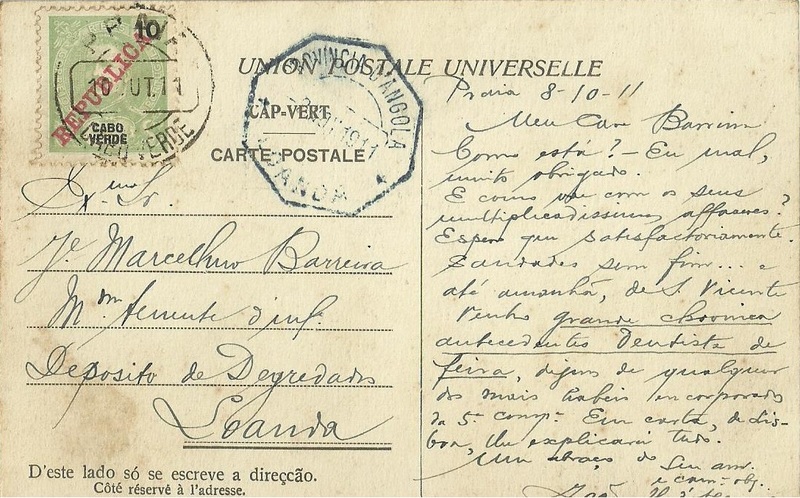 10
REPUBLICA
CABO
VERDE
10 OUT.11
CABO VERDE
PROVINCIA D'ANGOLA
1911
LOANDA
UNION POSTALE UNIVERSELLE
CAP-VERT
CARTE POSTALE
Exmo Sr.
Jé. Marcellino Barreira
Mm Tenente d'inf.
Deposito de Degredados
Loanda
D'este lado só se escreve a direcção.
Côté réservé à l'adresse.
Praia 8-10-11
Meu Caro Barreira
Como está? - Eu mal,
muito obrigado.
E como vae com os seus
multiplicadissimos affazeres?
Espero que satisfactoriamente.
Saudades sem fim... e
até amanhã, de S. Vicente
Venho grande chronica
antecedentes Dentista de
feira, dignos de qualquer
dos mais habeis encorporados
da 5ª compª. Em carta, de Lis-
boa, lhe explicarei tudo.
Um abraço do Seu am.
e cam. obg.